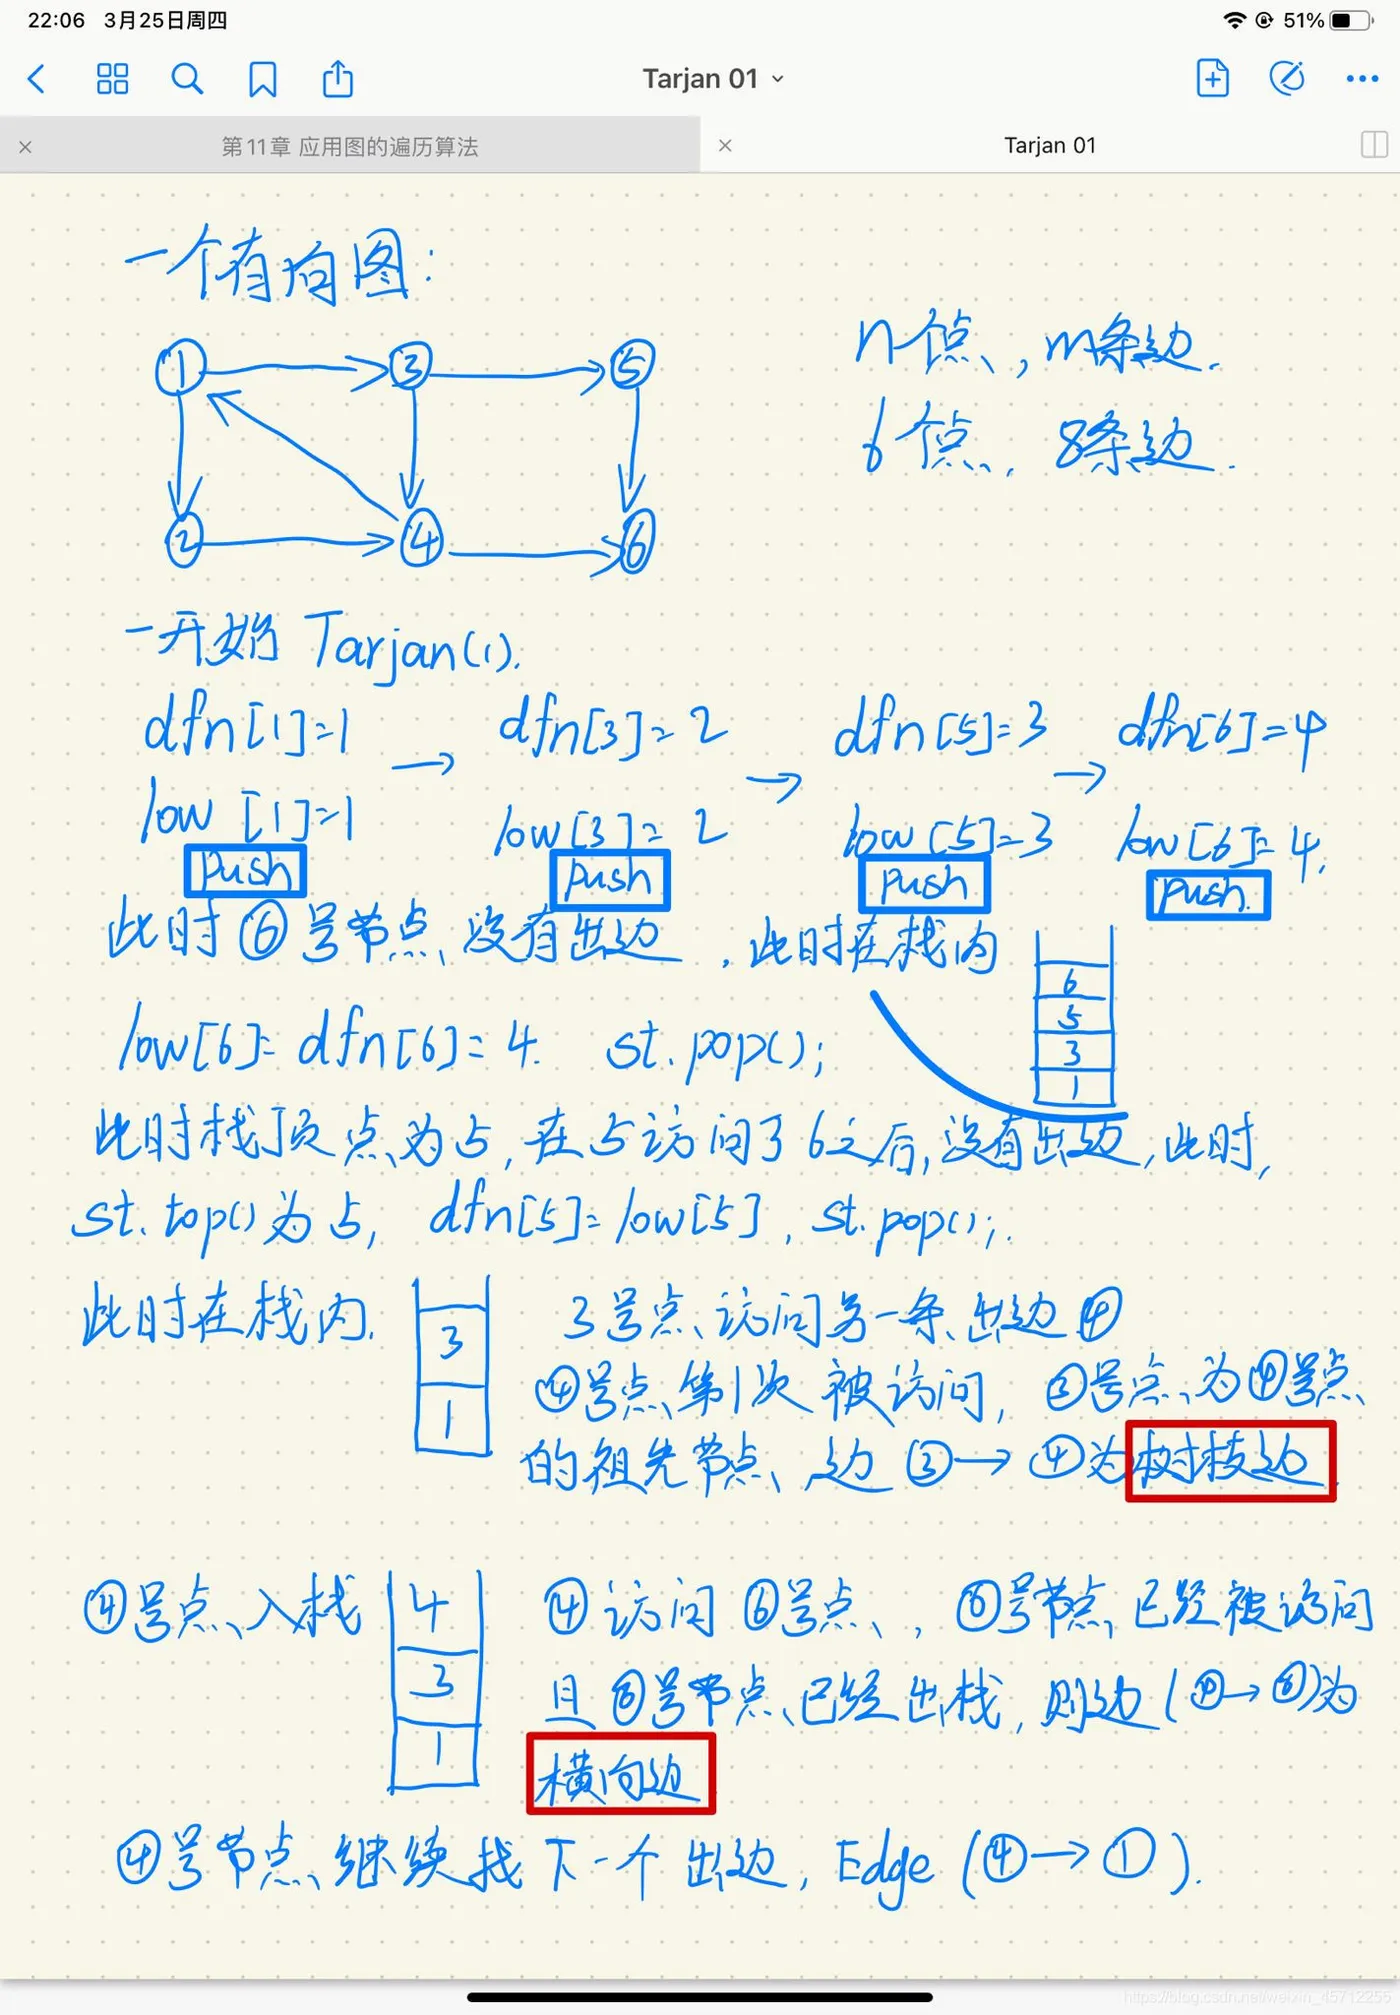 22:06 3月25日周四
51%
Tarjan 01
第11章 应用图的遍历算法
Tarjan 01
一个有向图:
n个点, m条边.
6个点, 8条边.
① ③ ⑤
② ④ ⑥
一开始 Tarjan(1).
dfn[1]=1 → dfn[3]=2 → dfn[5]=3 → dfn[6]=4
low[1]=1 low[3]=2 low[5]=3 low[6]=4.
push push push push.
此时⑥号节点没有出边, 此时在栈内
6
5
3
1
low[6]=dfn[6]=4. st.pop();
此时栈顶点为5, 在5访问了6之后, 没有出边, 此时,
st.top()为5, dfn[5]=low[5], st.pop();.
此时在栈内.
3
1
3号点访问另一条出边④
④号点第1次被访问, ③号点为④号点
的祖先节点, 边③→④为树枝边
④号点入栈
4
3
1
④访问⑥号点, ⑥号节点已经被访问
且⑥号节点已经出栈, 则边(④→⑥)为
横向边
④号节点继续找下一个出边, Edge(④→①).
https://blog.csdn.net/weixin_45712255